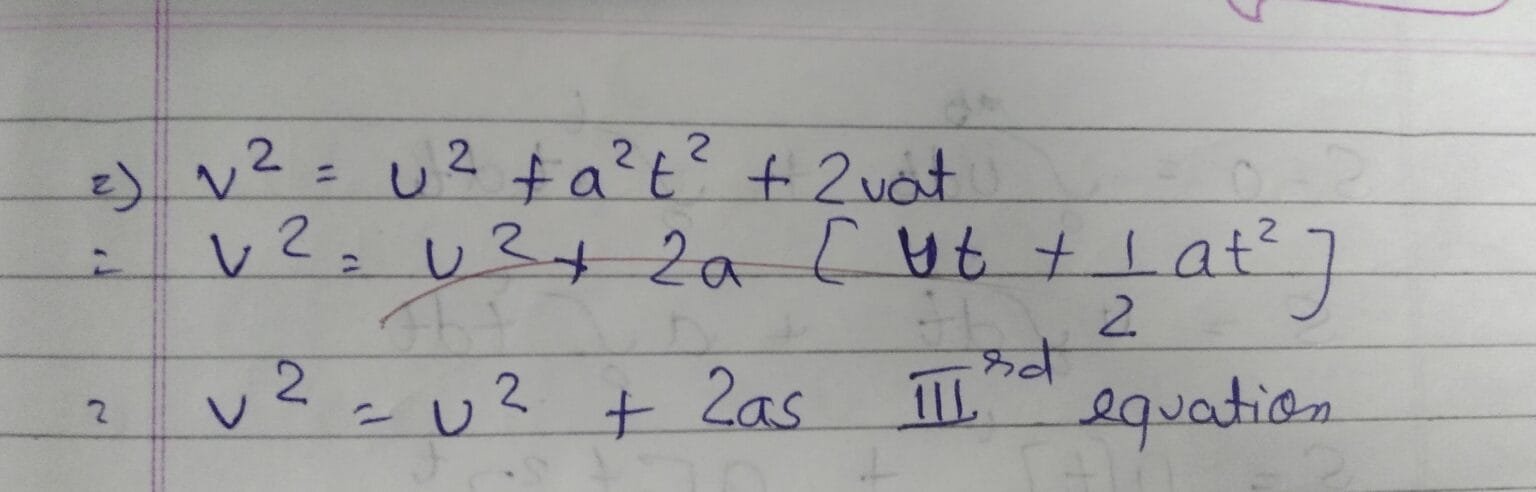 =) v² = u² + a²t² + 2uat
= v² = u² + 2a [ut + 1/2 at²]
= v² = u² + 2as IIIrd equation